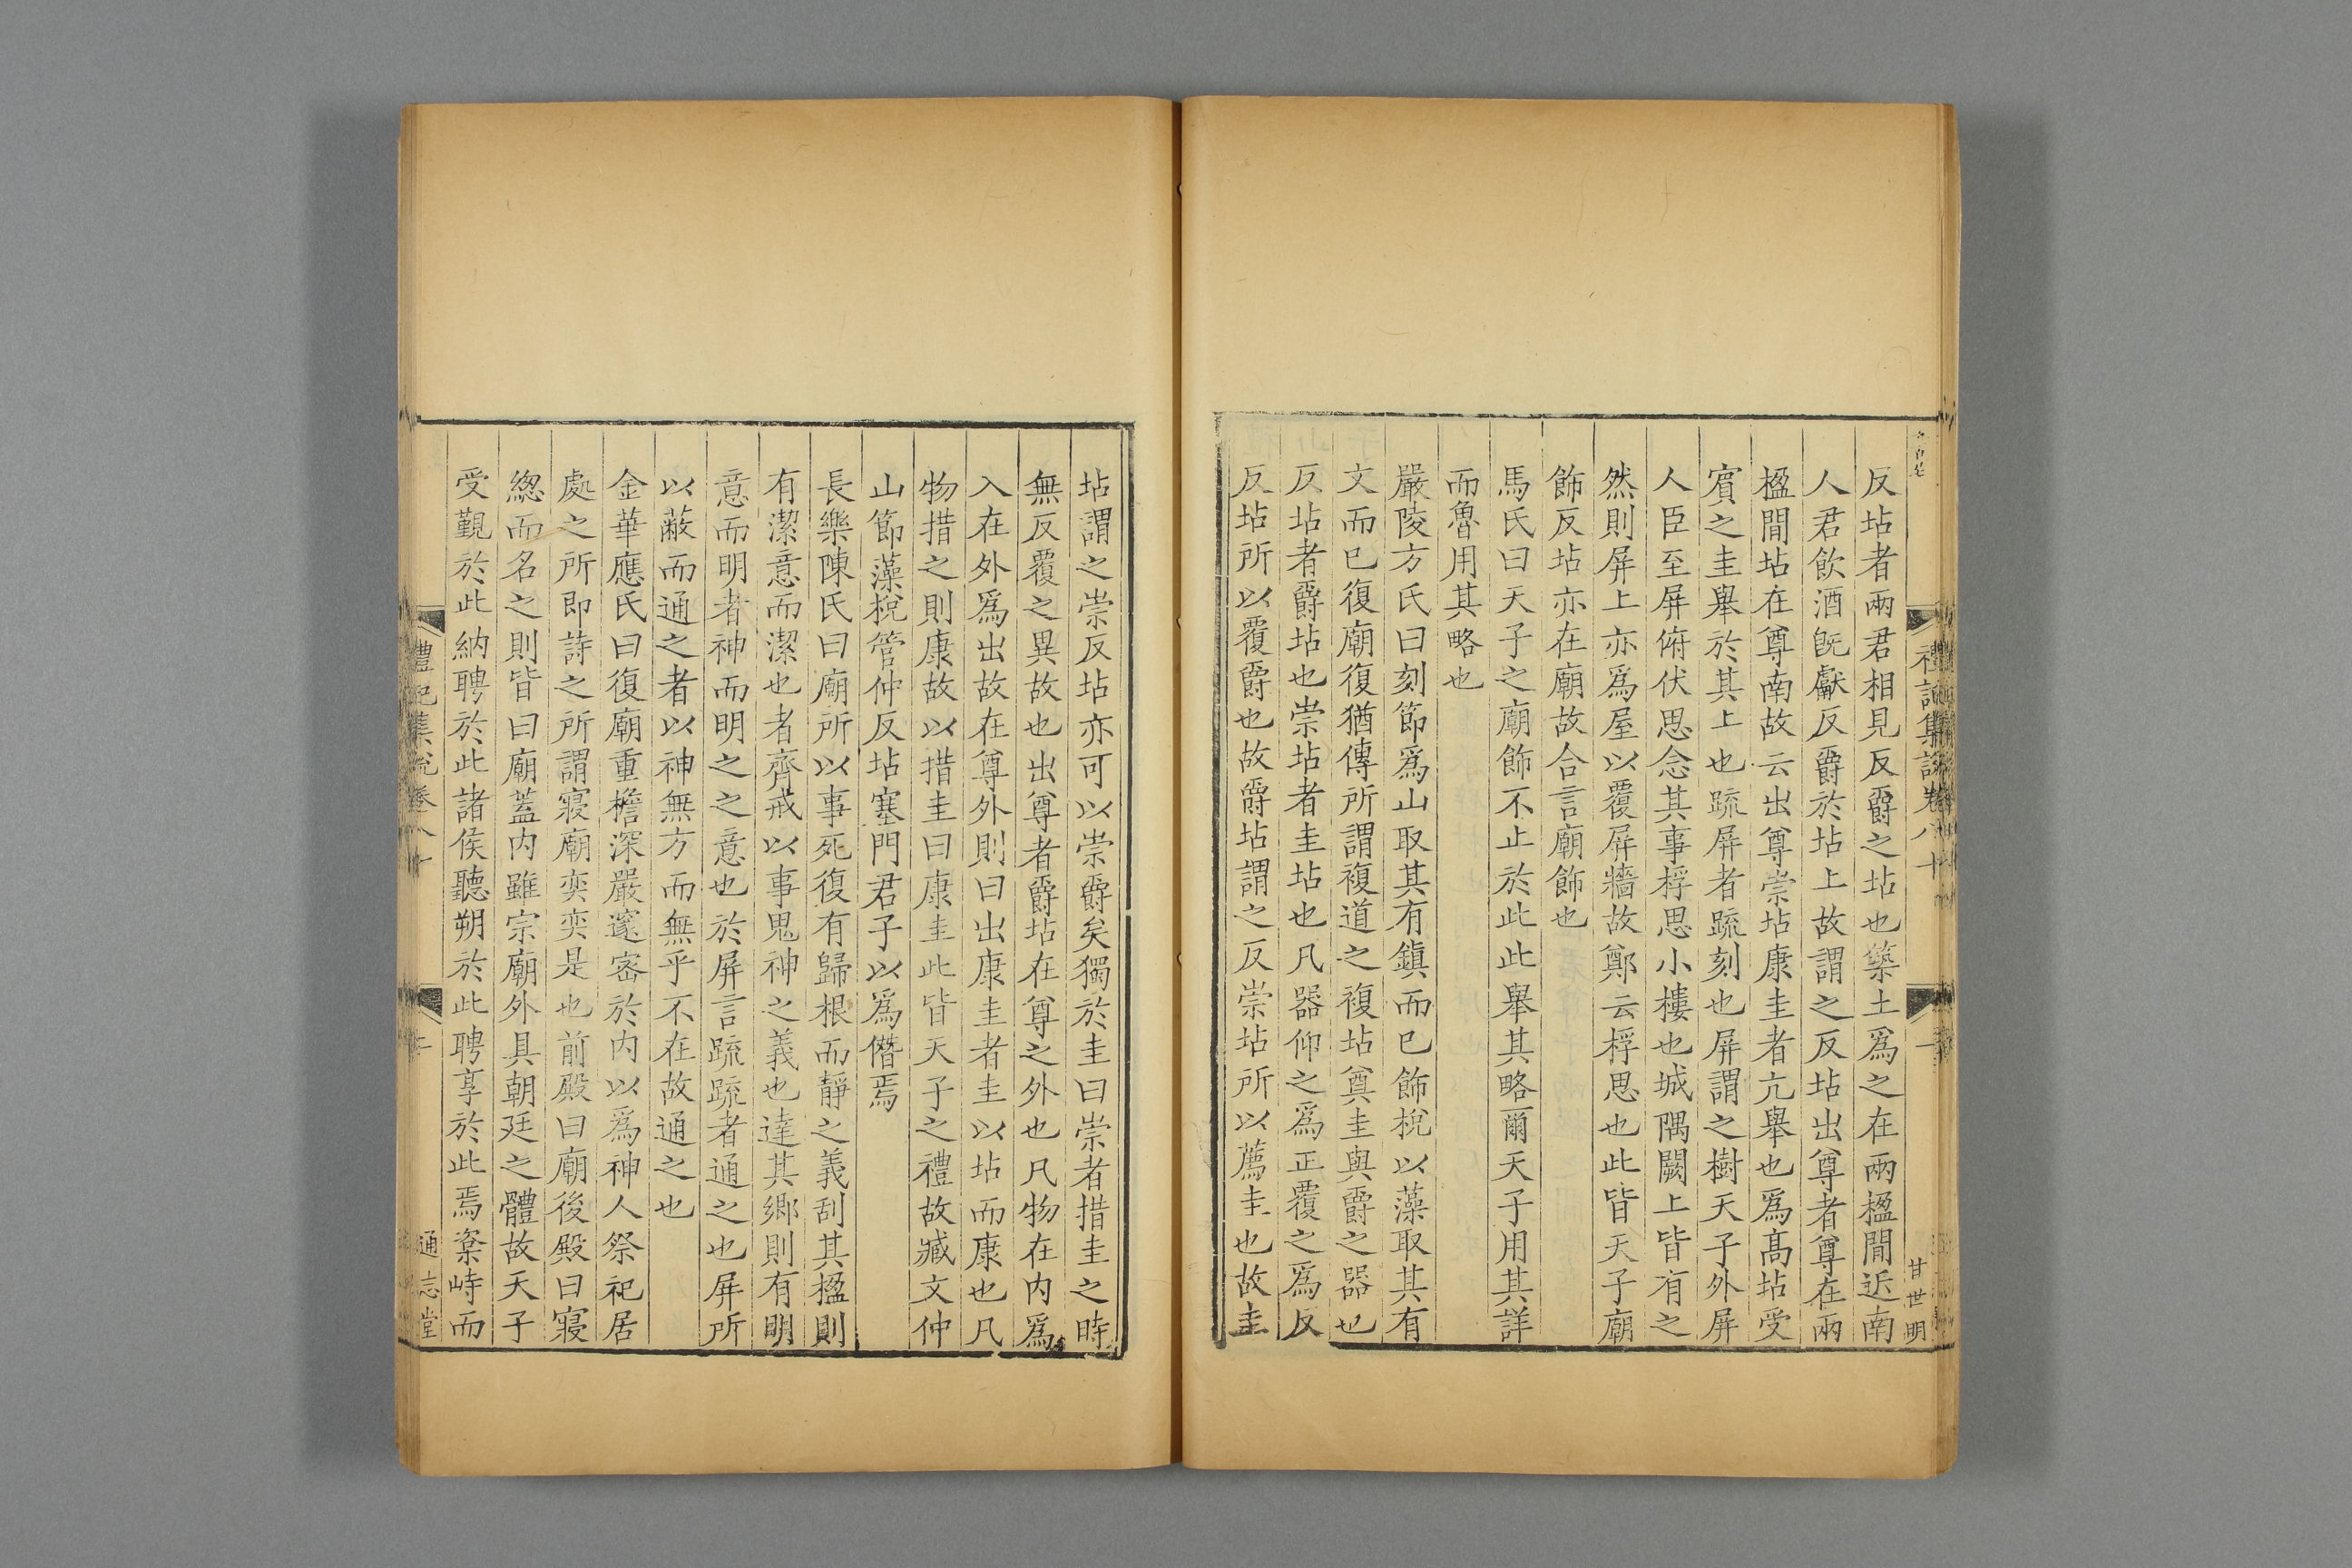 禮記集說卷八十
一
甘世明
反坫者兩君相見反爵之坫也築土爲之在兩楹閒近南
人君飲酒旣獻反爵於坫上故謂之反坫出尊者尊在兩
楹閒坫在尊南故云出尊崇坫康圭者亢舉也爲髙坫受
賔之圭舉於其上也疏屏者疏刻也屏謂之樹天子外屏
人臣至屏俯伏思念其事桴思小樓也城隅闕上皆有之
然則屏上亦爲屋以覆屏牆故鄭云桴思也此皆天子廟
飾反坫亦在廟故合言廟飾也
馬氏曰天子之廟飾不止於此此舉其略爾天子用其詳
而魯用其略也
嚴陵方氏曰刻節爲山取其有鎮而已飾梲以藻取其有
文而已復廟復猶傳所謂複道之複坫奠圭與爵之器也
反坫者爵坫也崇坫者圭坫也凡器仰之爲正覆之爲反
反坫所以覆爵也故爵坫謂之反崇坫所以薦圭也故圭
坫謂之崇反坫亦可以崇爵矣獨於圭曰崇者措圭之時
無反覆之異故也出尊者爵坫在尊之外也凡物在内爲
入在外爲出故在尊外則曰出康圭者圭以坫而康也凡
物措之則康故以措圭曰康圭此皆天子之禮故臧文仲
山節藻梲管仲反坫塞門君子以爲僭焉
長樂陳氏曰廟所以事死復有歸根而靜之義刮其楹則
有潔意而潔也者齊戒以事鬼神之義也達其鄉則有明
意而明者神而明之之意也於屏言疏疏者通之也屏所
以蔽而通之者以神無方而無乎不在故通之也
金華應氏曰復廟重檐深嚴邃密於内以爲神人祭祀居
處之所即詩之所謂寢廟奕奕是也前殿曰廟後殿曰寢
緫而名之則皆曰廟蓋内雖宗廟外具朝廷之體故天子
受覲於此納聘於此諸侯聽朔於此聘享於此焉棄峙而
禮記集說卷八十
二
通志堂